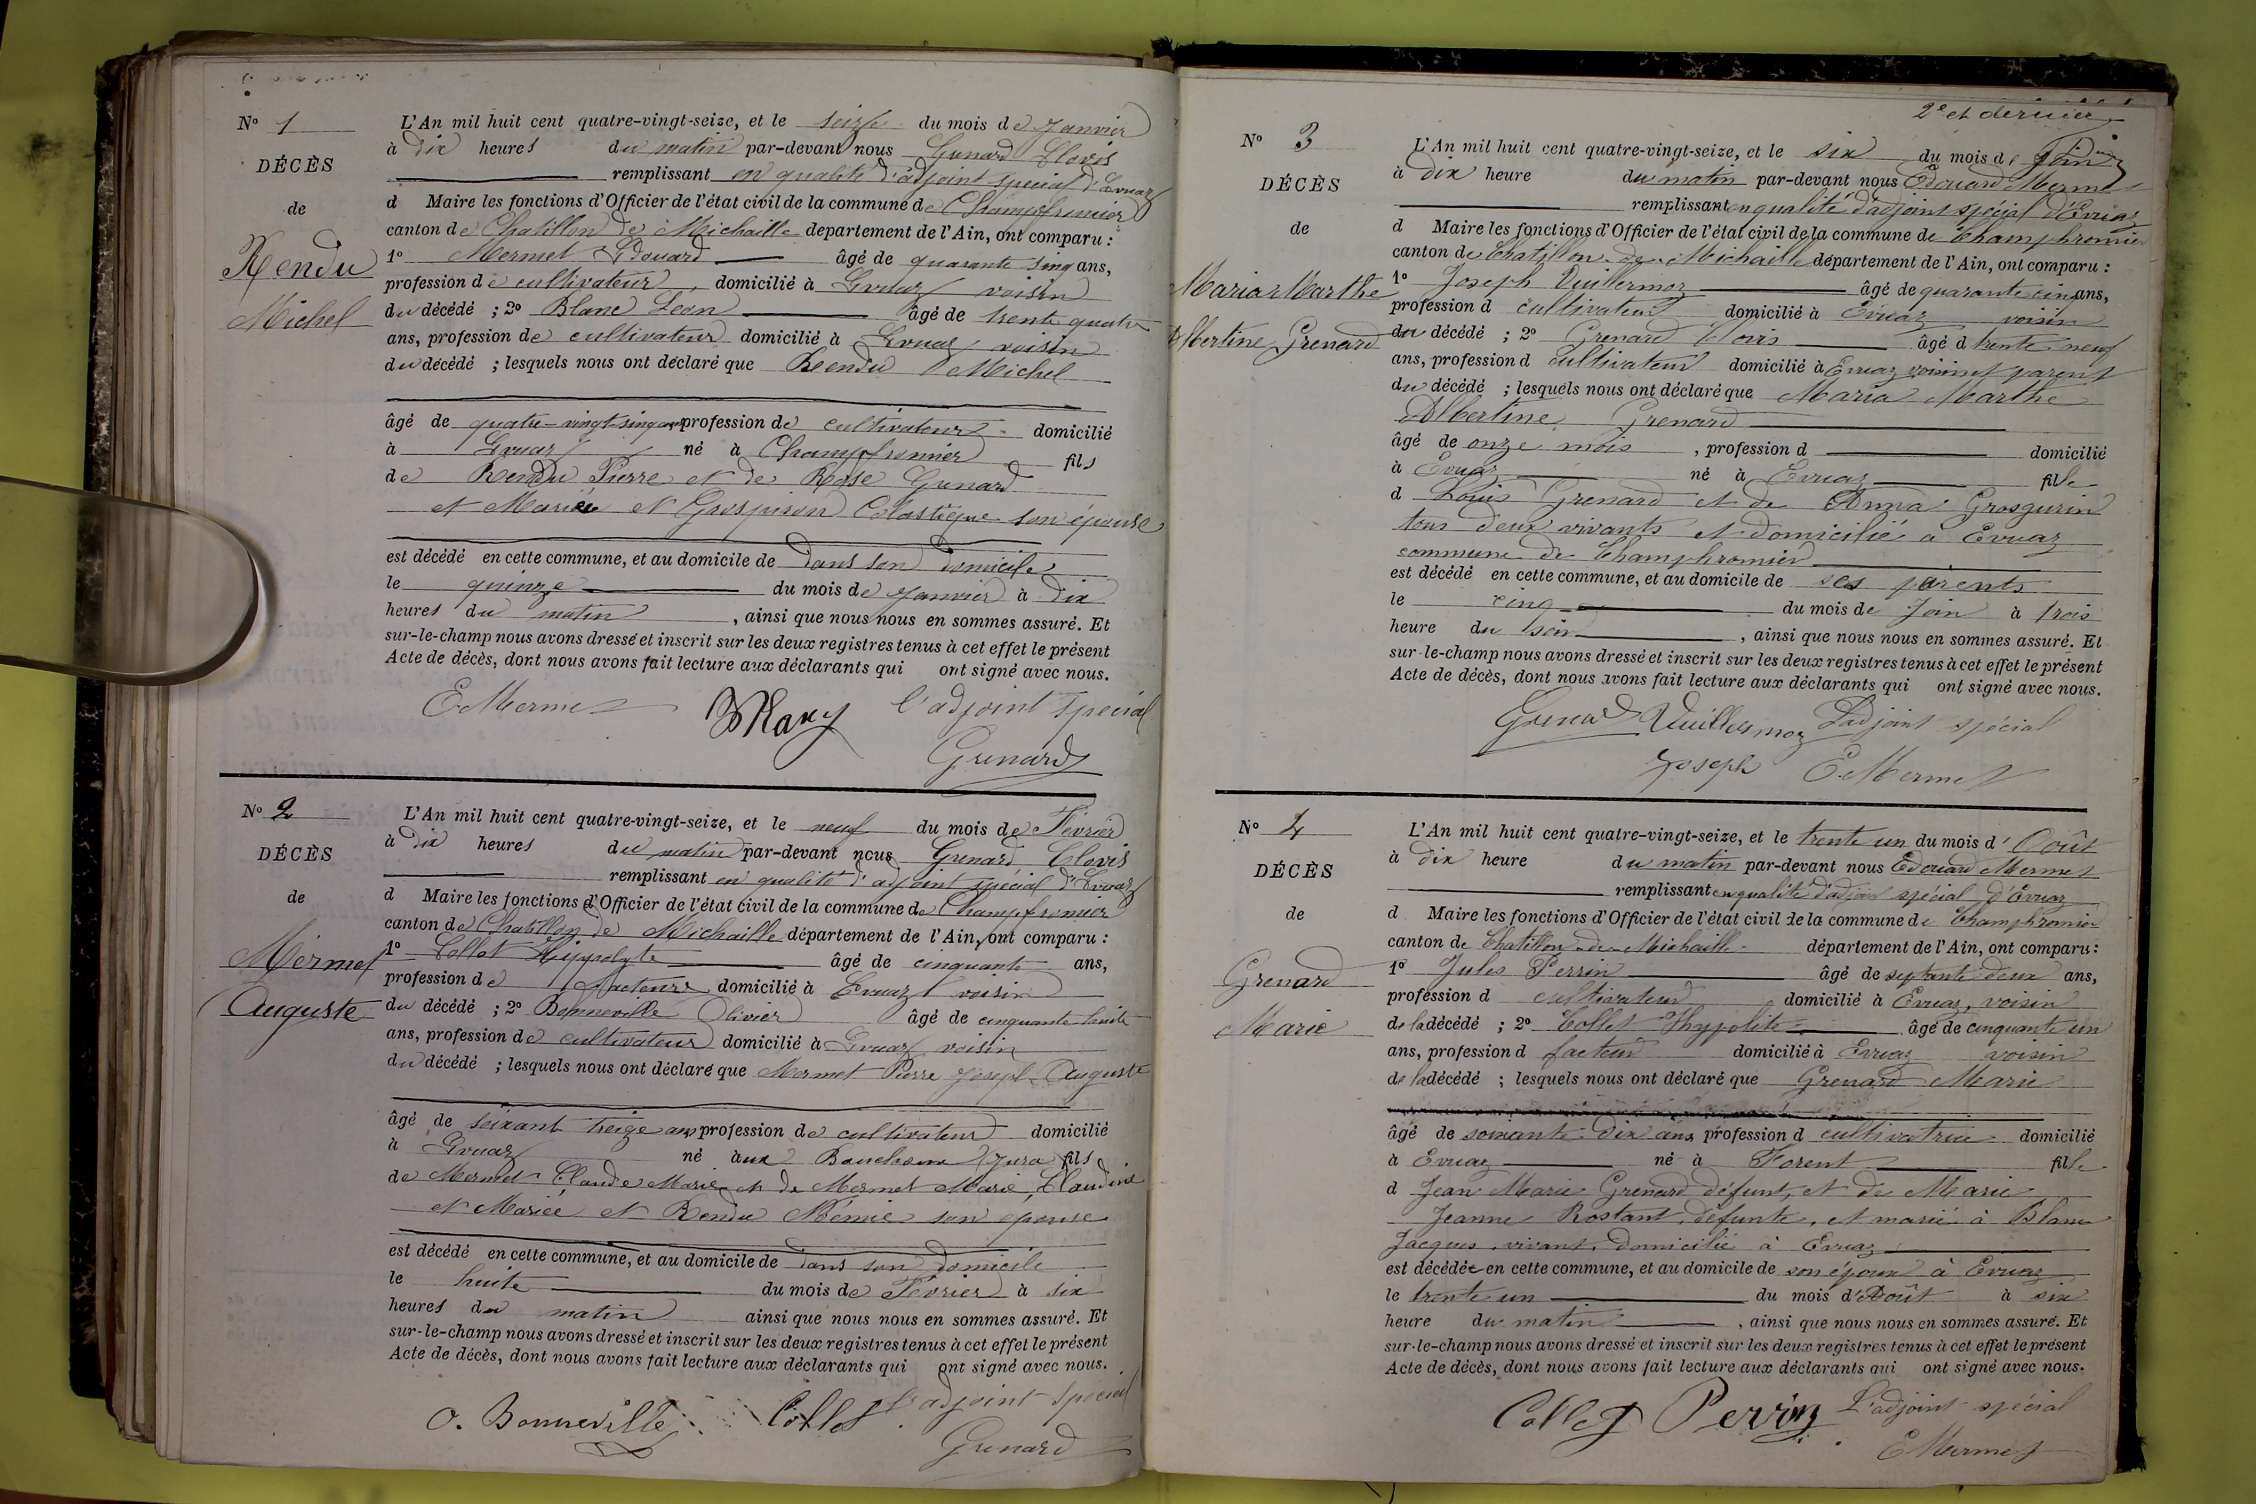 N° 1
DÉCÈS
de
Rendu
Michel
L'An mil huit cent quatre-vingt-seize, et le seize du mois de Janvier
à dix heures du matin par-devant nous Grenard Clovis
remplissant en qualité d'adjoint spécial d'Evuaz
d Maire les fonctions d'Officier de l'état civil de la commune de Champfromier
canton de Chatillon de Michaille département de l'Ain, ont comparu :
1° Mermet Edouard âgé de quarante sinq ans,
profession de cultivateur, domicilié à Evuaz voisin
du décédé ; 2° Blanc Leon âgé de trente quatre
ans, profession de cultivateur domicilié à Evuaz voisin
du décédé ; lesquels nous ont déclaré que Rendu Michel
âgé de quatre-vingt-sinq ans profession de cultivateur domicilié
à Evuaz né à Champfromier fils
de Rendu Pierre et de Rose Grenard
et Mariée et Grospirond Colastique son épouse
est décédé en cette commune, et au domicile de dans son domicile
le quinze du mois de Janvier à dix
heures du matin, ainsi que nous nous en sommes assuré. Et
sur-le-champ nous avons dressé et inscrit sur les deux registres tenus à cet effet le présent
Acte de décès, dont nous avons fait lecture aux déclarants qui ont signé avec nous.
E Mermet l'adjoint spécial
Grenard
N° 2
DÉCÈS
de
Mermet
Auguste
L'An mil huit cent quatre-vingt-seize, et le neuf du mois de Février
à dix heures du matin par-devant nous Grenard Clovis
remplissant en qualité d'adjoint spécial d'Evuaz
d Maire les fonctions d'Officier de l'état civil de la commune de Champfromier
canton de Chatillon de Michaille département de l'Ain, ont comparu :
1° Collet Hippolyte âgé de cinquante ans,
profession de facteur domicilié à Evuaz voisin
du décédé ; 2° Bonneville Olivier âgé de cinquante huite
ans, profession de cultivateur domicilié à Evuaz voisin
du décédé ; lesquels nous ont déclaré que Mermet Pierre Joseph Auguste
âgé de seixant treize ans profession de cultivateur domicilié
à Evuaz né aux Bouchoux (Jura) fils
de Mermet Claude Marie et de Mermet Marie Claudine
et Mariée et Rendu Mémie son épouse
est décédé en cette commune, et au domicile de dans son domicile
le huite du mois de Février à six
heures du matin ainsi que nous nous en sommes assuré. Et
sur-le-champ nous avons dressé et inscrit sur les deux registres tenus à cet effet le présent
Acte de décès, dont nous avons fait lecture aux déclarants qui ont signé avec nous.
O. Bonneville Collet l'adjoint spécial
Grenard
2e et dernier
N° 3
DÉCÈS
de
Maria Marthe
Albertine Grenard
L'An mil huit cent quatre-vingt-seize, et le six du mois de Join
à dix heure du matin par-devant nous Edouard Mermet
remplissant en qualité d'adjoint spécial d'Evuaz
d Maire les fonctions d'Officier de l'état civil de la commune de Champhromier
canton de Chatillon-de-Michaille département de l'Ain, ont comparu :
1° Joseph Vuillermoz âgé de quarante cinq ans,
profession d cultivateur domicilié à Evuaz voisin
du décédé ; 2° Grenard Clovis âgé d trente neuf
ans, profession d cultivateur domicilié à Evuaz voisin et parent
du décédé ; lesquels nous ont déclaré que Maria Marthe
Albertine Grenard
âgé de onze mois, profession d domicilié
à Evuaz né à Evuaz fille
d Louis Grenard et de Anna Grosgurin
tous deux vivants et domicilié à Evuaz
commune de Champhromier
est décédé en cette commune, et au domicile de ses parents
le cinq du mois de Join à trois
heure du soir, ainsi que nous nous en sommes assuré. Et
sur-le-champ nous avons dressé et inscrit sur les deux registres tenus à cet effet le présent
Acte de décès, dont nous avons fait lecture aux déclarants qui ont signé avec nous.
Grenard Vuillermoz L'adjoint spécial
Joseph E Mermet
N° 4
DÉCÈS
de
Grenard
Marie
L'An mil huit cent quatre-vingt-seize, et le trente un du mois d'Août
à dix heure du matin par-devant nous Edouard Mermet
remplissant en qualité d'adjoint spécial d'Evuaz
d Maire les fonctions d'Officier de l'état civil de la commune de Champhromier
canton de Chatillon-de-Michaille département de l'Ain, ont comparu :
1° Jules Perrin âgé de septante deux ans,
profession d cultivateur domicilié à Evuaz, voisin
de la décédé ; 2° Collet Hypolite âgé de cinquante un
ans, profession d facteur domicilié à Evuaz voisin
de la décédé ; lesquels nous ont déclaré que Grenard Marie
âgé de soixante-dix ans profession d cultivatrice domicilié
à Evuaz né à Forent fille
d Jean Marie Grenard défunt, et de Marie
Jeanne Rostant, défunte, et marié à Blanc
Jacques, vivant, domicilié à Evuaz
est décédée en cette commune, et au domicile de son époux à Evuaz
le trente un du mois d'Août à six
heure du matin, ainsi que nous nous en sommes assuré. Et
sur-le-champ nous avons dressé et inscrit sur les deux registres tenus à cet effet le présent
Acte de décès, dont nous avons fait lecture aux déclarants qui ont signé avec nous.
Collet Perrin L'adjoint spécial
E Mermet